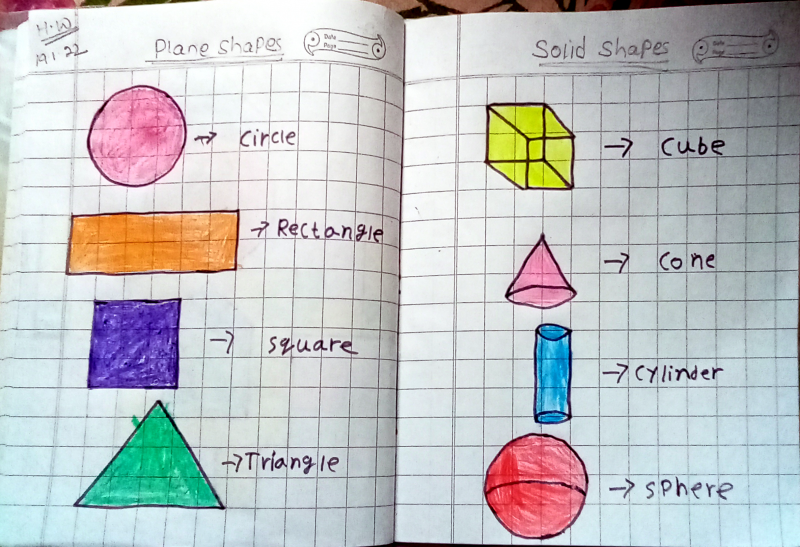 H.W
19.1.22
Plane Shapes
Date
Page
Circle
Rectangle
square
Triangle
Solid Shapes
Cube
Cone
Cylinder
sphere